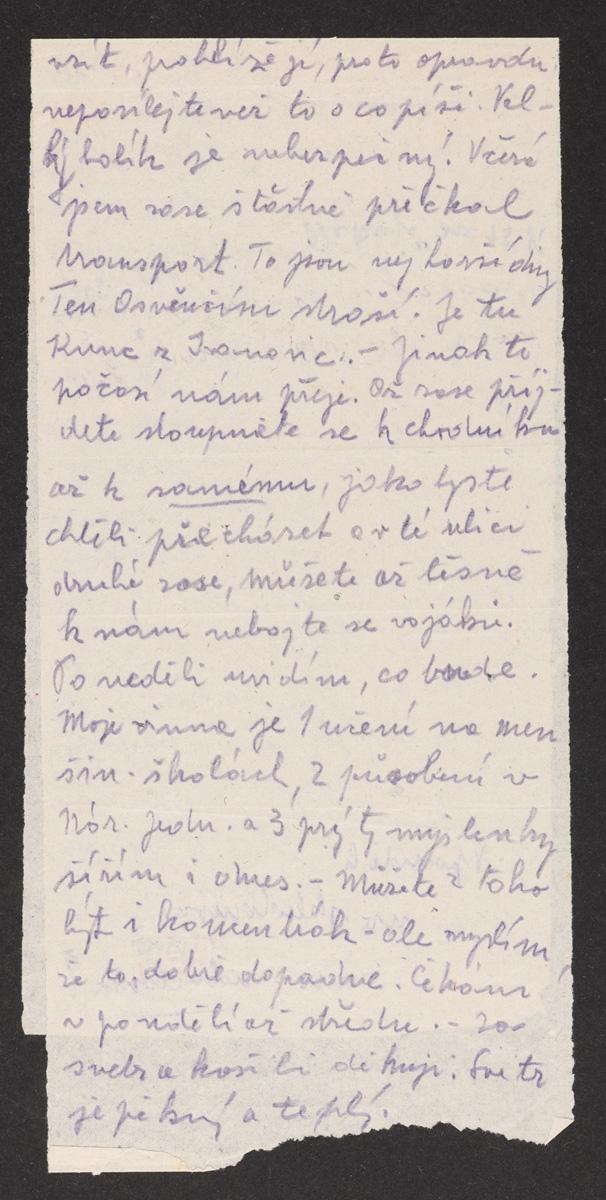 vzít, pohlížejí, proto opravdu
neposílejte než to o co píši. Vel-
ký balík je nebezpečný. Včera
jsem zase šťastně přečkal
transport. To jsou nejhorší dny
Ten Osvěnčim straší. Je tu
Kunc z Ivanovic. - Jinak to
počasí nám přeje. Až zase přij-
dete stoupněte se k chodníku
až k samému, jako byste
chtěli přecházet a v té ulici
druhé zase, můžete až těsně
k nám nebojte se vojáků.
Po neděli uvidím, co bude.
Moje vinna je 1 učení na men
šin. školách, 2 působení v
Nár. jedn. a 3 prý ty myšlenky
šířím i dnes. - Může z toho
být i koncentrák - ale myslím
že to dobře dopadne. Čekám
v pondělí až středu. - Za
svetr a košili děkuji. Svetr
je pěkný a teplý.